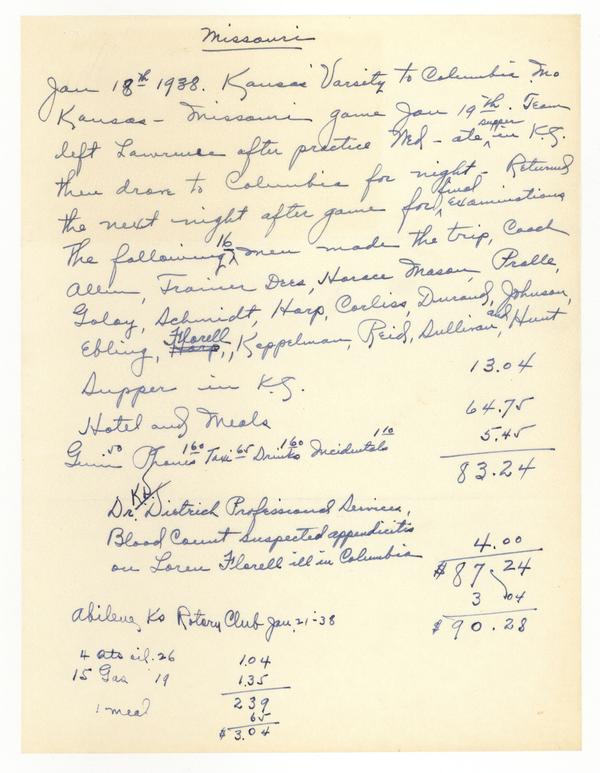 Missouri
Jan 18th 1938. Kansas Varsity to Columbia Mo
Kansas - Missouri game Jan 19th. Team
left Lawrence after practice Wed - ate supper in K.C.
then drove to Columbia for night - Returned
the next night after game for final examinations
The following 16 men made the trip, Coach
Allen, Trainer Dees, Horace Mason, Pralle,
Golay, Schmidt, Harp, Corliss, Durand, Johnson,
Ebling, Florell Harp, Keppelman, Reid, Sullivan, and Hunt
Supper in K.C. 13.04
Hotel and Meals 64.75
Gum .50 Phones 1 60 Taxi 65 Drinks 1 60 Incidentals 1 10 5.45
83.24
Dr. Dietrich Professional Services,
Blood Count suspected appendicitis 4.00
on Loren Florell ill in Columbia $87.24
3 04
Abilene, Ks Rotary Club Jan. 21-38 $90.28
4 qts oil .26 1.04
15 Gas 19 1.35
239
1 meal 65
$3.04